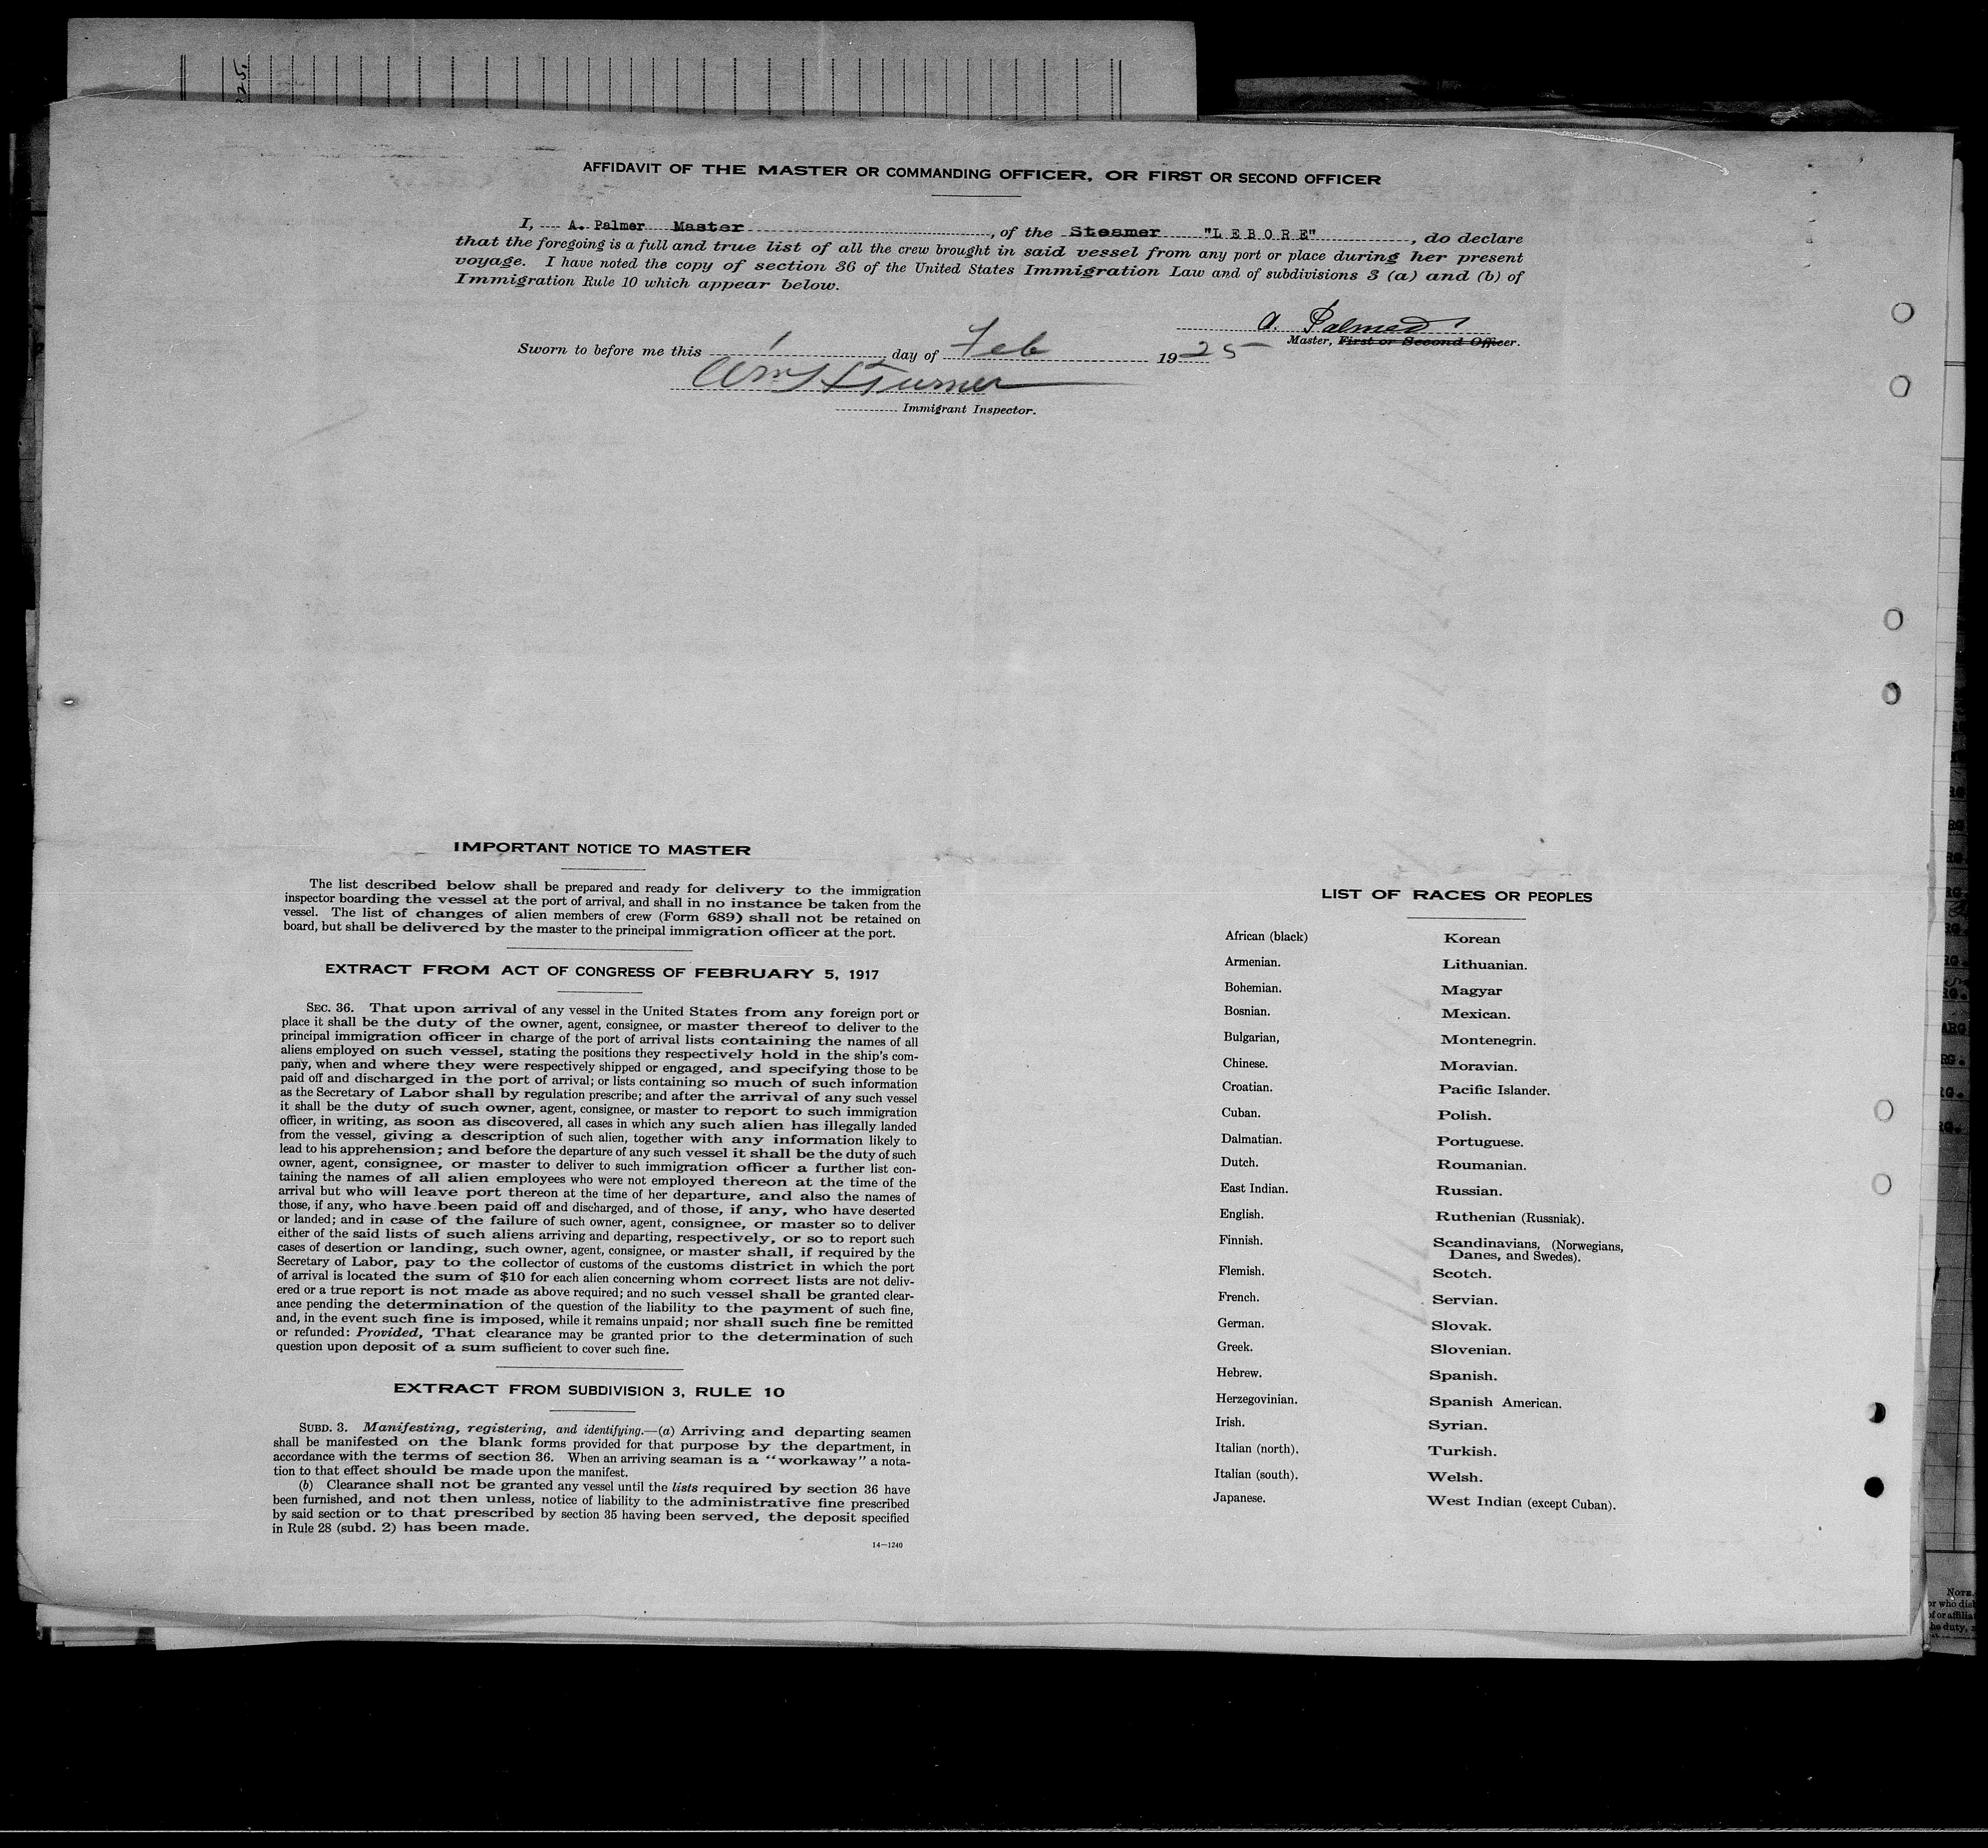 225.
AFFIDAVIT OF THE MASTER OR COMMANDING OFFICER, OR FIRST OR SECOND OFFICER
I, A. Palmer Master, of the Steamer "LEBORE", do declare
that the foregoing is a full and true list of all the crew brought in said vessel from any port or place during her present
voyage. I have noted the copy of section 36 of the United States Immigration Law and of subdivisions 3 (a) and (b) of
Immigration Rule 10 which appear below.
A. Palmer
Master, First or Second Officer.
Sworn to before me this 1 day of Feb 1925
Wm H Turner
Immigrant Inspector.
IMPORTANT NOTICE TO MASTER
The list described below shall be prepared and ready for delivery to the immigration
inspector boarding the vessel at the port of arrival, and shall in no instance be taken from the
vessel. The list of changes of alien members of crew (Form 689) shall not be retained on
board, but shall be delivered by the master to the principal immigration officer at the port.
EXTRACT FROM ACT OF CONGRESS OF FEBRUARY 5, 1917
SEC. 36. That upon arrival of any vessel in the United States from any foreign port or
place it shall be the duty of the owner, agent, consignee, or master thereof to deliver to the
principal immigration officer in charge of the port of arrival lists containing the names of all
aliens employed on such vessel, stating the positions they respectively hold in the ship's com-
pany, when and where they were respectively shipped or engaged, and specifying those to be
paid off and discharged in the port of arrival; or lists containing so much of such information
as the Secretary of Labor shall by regulation prescribe; and after the arrival of any such vessel
it shall be the duty of such owner, agent, consignee, or master to report to such immigration
officer, in writing, as soon as discovered, all cases in which any such alien has illegally landed
from the vessel, giving a description of such alien, together with any information likely to
lead to his apprehension; and before the departure of any such vessel it shall be the duty of such
owner, agent, consignee, or master to deliver to such immigration officer a further list con-
taining the names of all alien employees who were not employed thereon at the time of the
arrival but who will leave port thereon at the time of her departure, and also the names of
those, if any, who have been paid off and discharged, and of those, if any, who have deserted
or landed; and in case of the failure of such owner, agent, consignee, or master so to deliver
either of the said lists of such aliens arriving and departing, respectively, or so to report such
cases of desertion or landing, such owner, agent, consignee, or master shall, if required by the
Secretary of Labor, pay to the collector of customs of the customs district in which the port
of arrival is located the sum of $10 for each alien concerning whom correct lists are not deliv-
ered or a true report is not made as above required; and no such vessel shall be granted clear-
ance pending the determination of the question of the liability to the payment of such fine,
and, in the event such fine is imposed, while it remains unpaid; nor shall such fine be remitted
or refunded: Provided, That clearance may be granted prior to the determination of such
question upon deposit of a sum sufficient to cover such fine.
EXTRACT FROM SUBDIVISION 3, RULE 10
SUBD. 3. Manifesting, registering, and identifying.—(a) Arriving and departing seamen
shall be manifested on the blank forms provided for that purpose by the department, in
accordance with the terms of section 36. When an arriving seaman is a "workaway" a nota-
tion to that effect should be made upon the manifest.
(b) Clearance shall not be granted any vessel until the lists required by section 36 have
been furnished, and not then unless, notice of liability to the administrative fine prescribed
by said section or to that prescribed by section 35 having been served, the deposit specified
in Rule 28 (subd. 2) has been made.
14—1240
LIST OF RACES OR PEOPLES
African (black)
Armenian.
Bohemian.
Bosnian.
Bulgarian,
Chinese.
Croatian.
Cuban.
Dalmatian.
Dutch.
East Indian.
English.
Finnish.
Flemish.
French.
German.
Greek.
Hebrew.
Herzegovinian.
Irish.
Italian (north).
Italian (south).
Japanese.
Korean
Lithuanian.
Magyar
Mexican.
Montenegrin.
Moravian.
Pacific Islander.
Polish.
Portuguese.
Roumanian.
Russian.
Ruthenian (Russniak).
Scandinavians, (Norwegians,
Danes, and Swedes).
Scotch.
Servian.
Slovak.
Slovenian.
Spanish.
Spanish American.
Syrian.
Turkish.
Welsh.
West Indian (except Cuban).